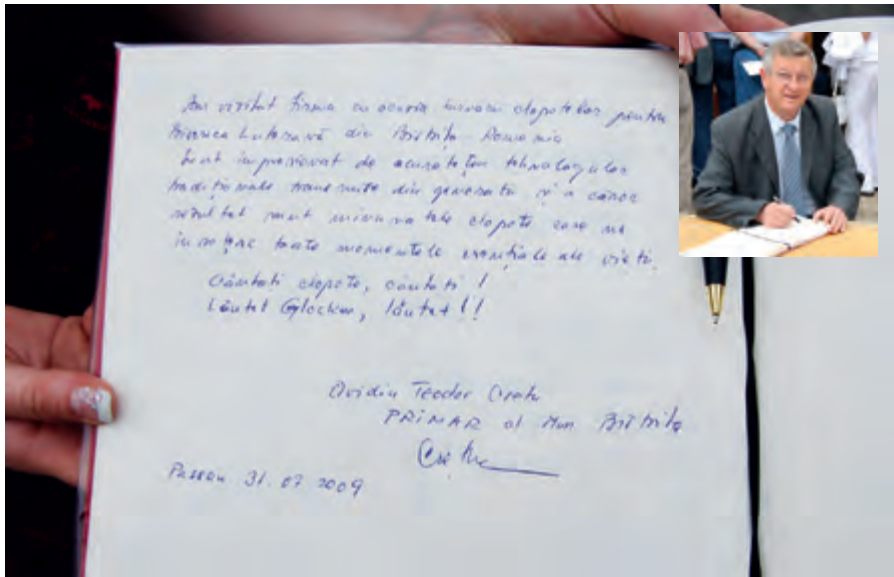 Am vizitat firma cu ocazia turnării clopotelor pentru
Biserica Luterană din Bistrița Romania
Sunt impresionat de acuratețea tehnologiilor
tradiționale transmise din generații și a căror
rezultat sunt minunatele clopote care ne
insoțesc toate momentele esențiale ale vieții.
Cântati clopote, cântati !
Läutet Glocken, läutet !!
Ovidiu Teodor Crețu
PRIMAR al Mun Bistrița
Passau 31.07 2009